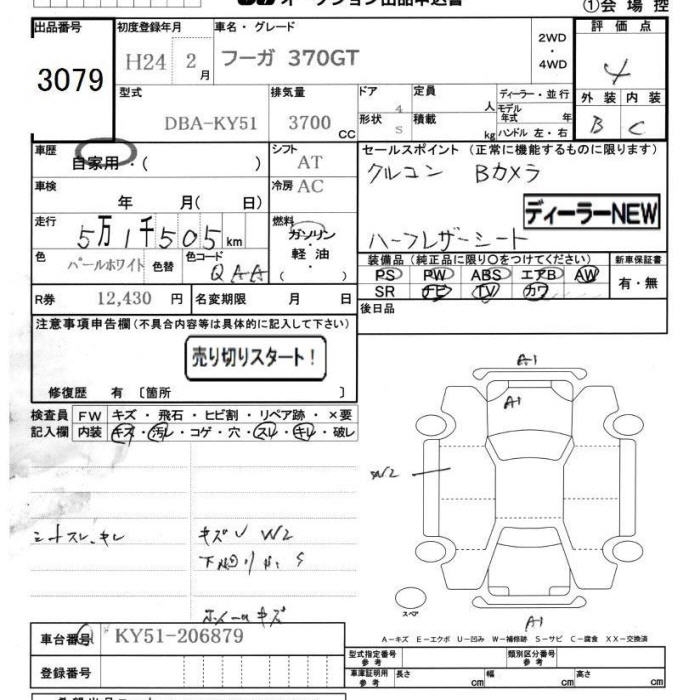 オークション出品申込書
①会 場 控
出品番号
3079
初度登録年月
H24 2 月
車名・グレード
フーガ 370GT
2WD
・
4WD
評 価 点
4
外 装 内 装
B C
型式
DBA-KY51
排気量
3700 CC
ドア
4
形状
S
定員
人
積載
kg
ディーラー・並行
モデル年式 年
ハンドル 左・右
車歴
自家用・( )
シフト
AT
車検
年 月( 日)
冷房 AC
走行
5万1千505 km
燃料
ガソリン
・
軽 油
・
( )
色
パールホワイト
色替
色コード
QAA
R券
12,430 円
名変期限 月 日
セールスポイント (正常に機能するものに限ります)
クルコン Bカメラ
ディーラーNEW
ハーフレザーシート
装備品(純正品に限り○をつけてください)
PS PW ABS エアB AW
SR ナビ TV カワ
新車保証書
有・無
後日品
注意事項申告欄(不具合内容等は具体的に記入して下さい)
売り切りスタート!
修復歴 有 〔箇所 〕
検査員
記入欄
FW キズ・飛石・ヒビ割・リペア跡・×要
内装 キズ・汚レ・コゲ・穴・スレ・キレ・破レ
シートスレ、キレ
キズU W2
ホイールキズ
A1
A1
W2
A1
スペア
A-キズ E-エクボ U-凹み W-補修跡 S-サビ C-腐食 XX-交換済
車台番号
KY51-206879
登録番号
型式指定番号
参 考
類別区分番号
参 考
車庫証明用
参 考
長さ cm
幅 cm
高さ cm